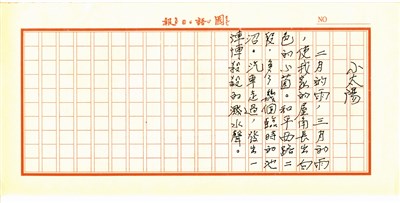 國語日報
NO
小太陽
二月的雨，三月的雨
，使我家的屋角長出白
色的小菌。和平西路二
段，多了幾個臨時的池
沼。汽車走過，發出一
陣陣殺殺的濺水聲。